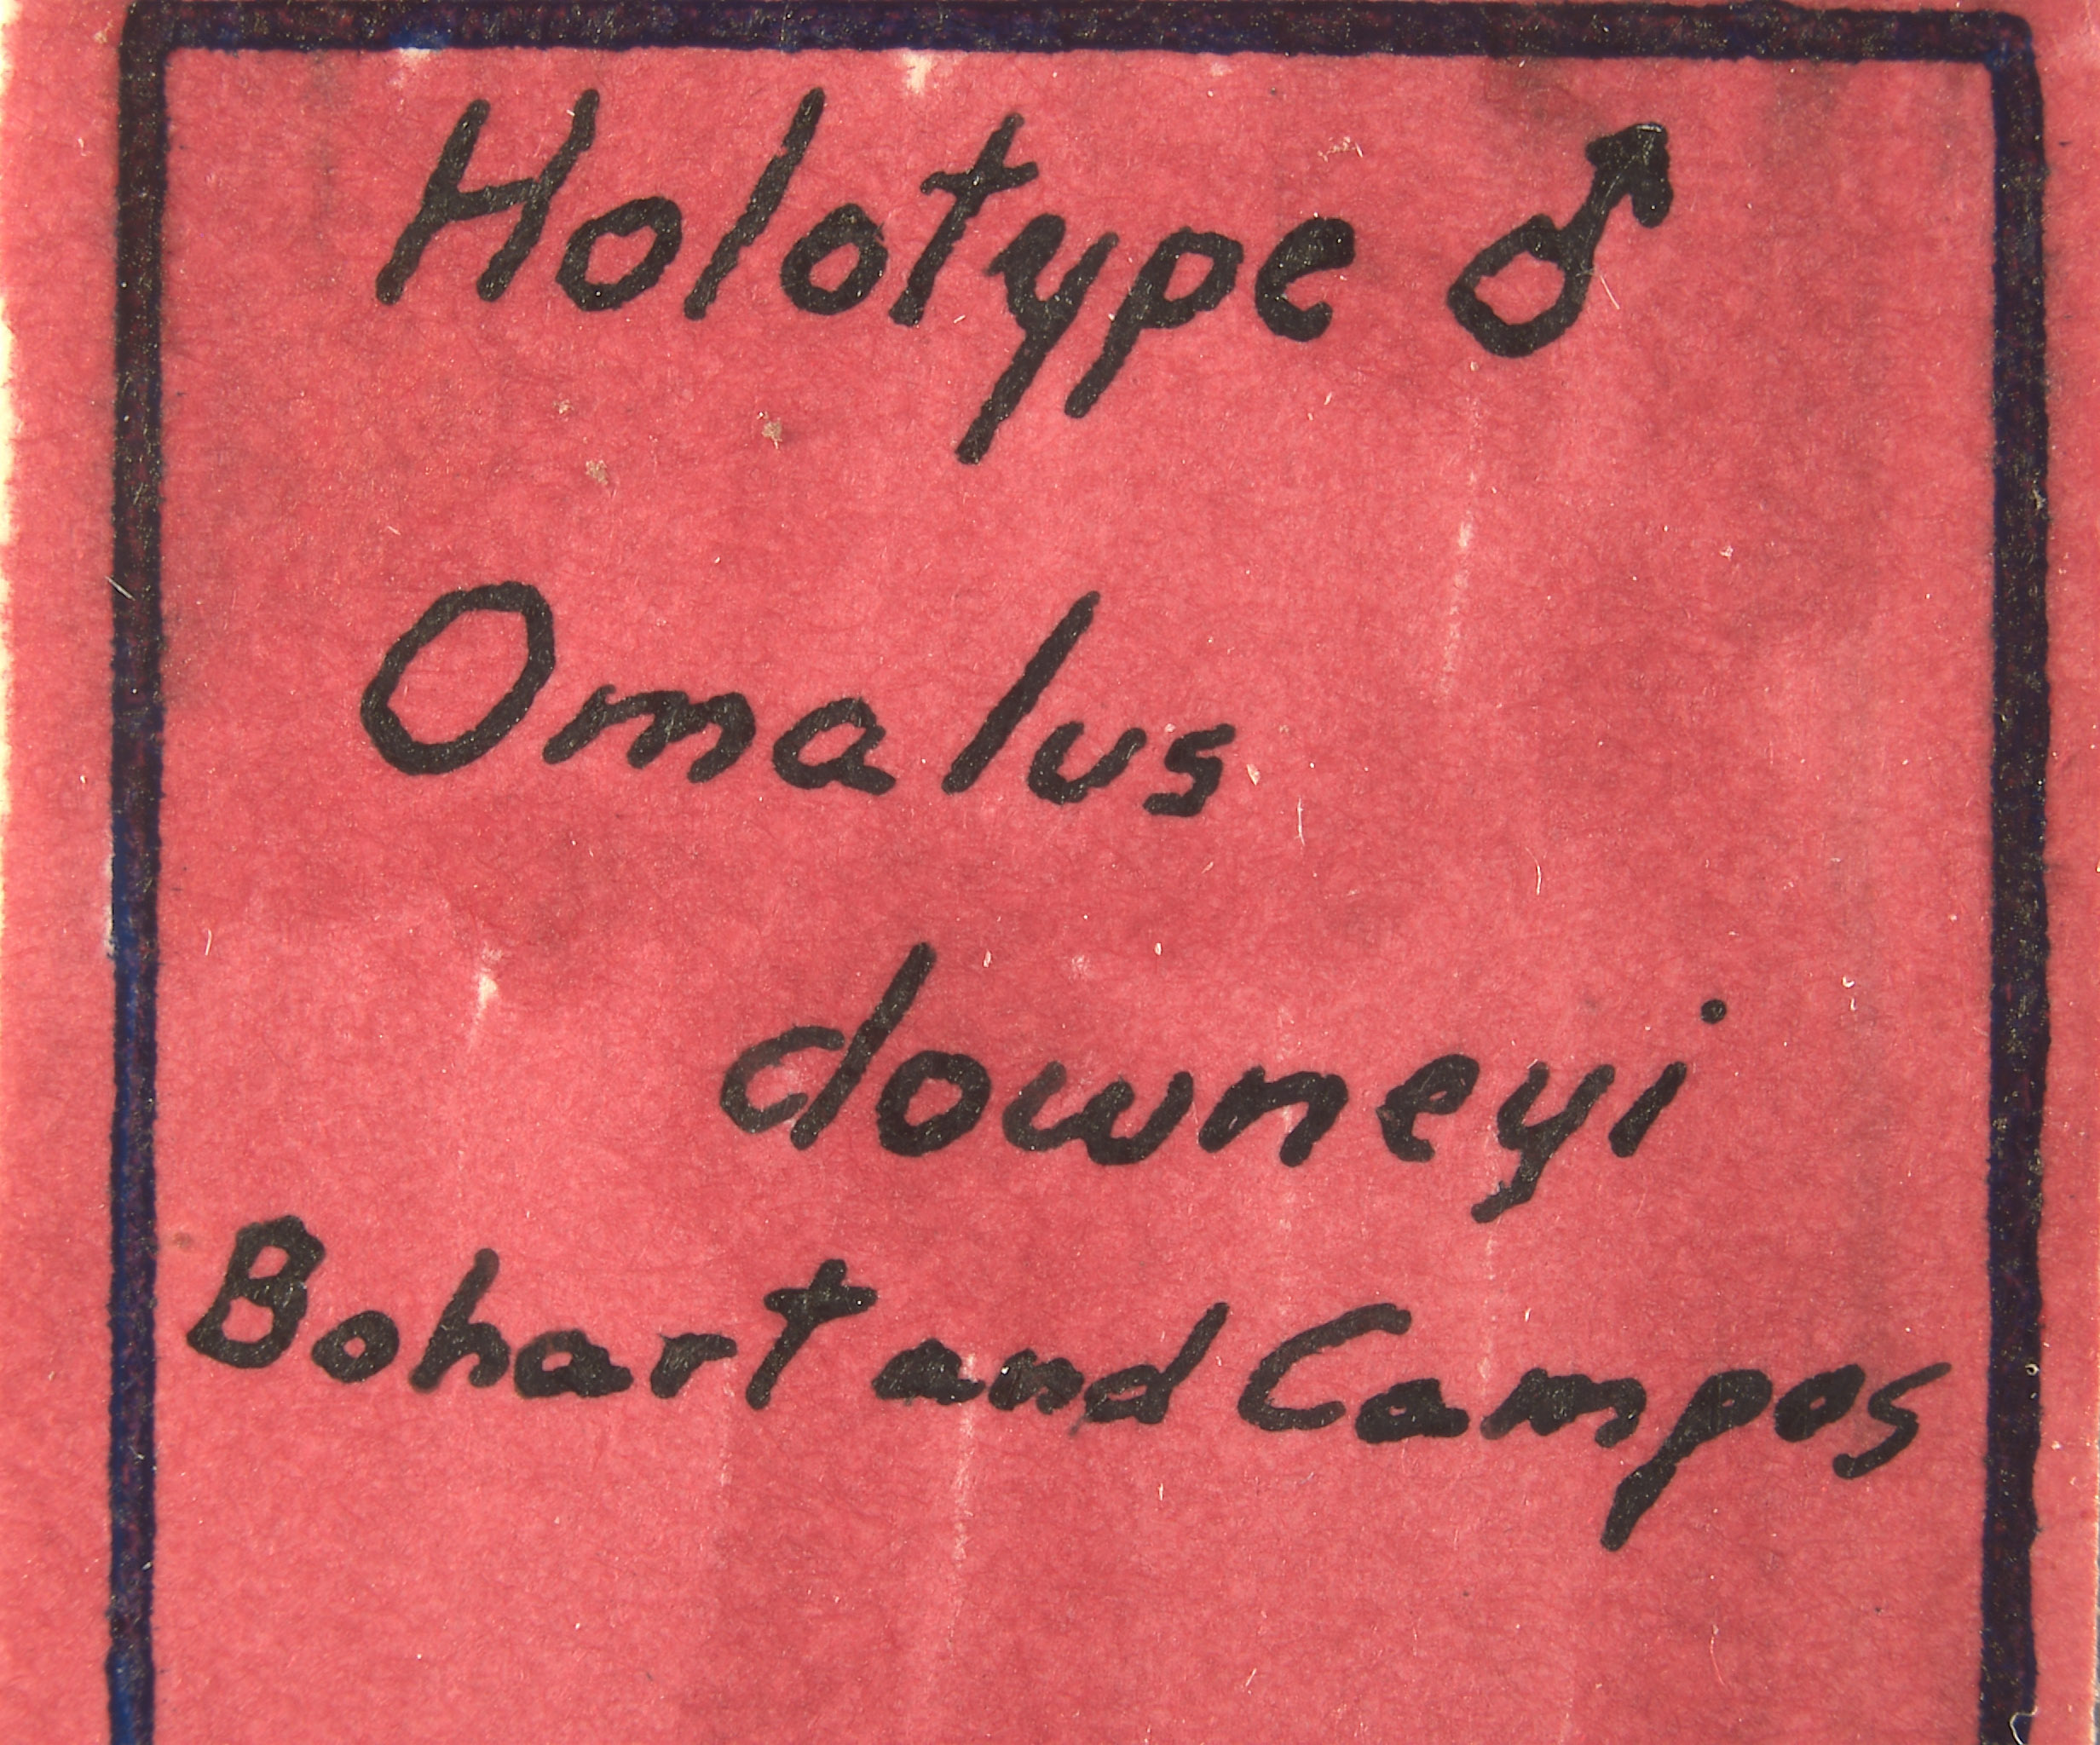 Holotype ♂
Omalus
downeyi
Bohart and Campos